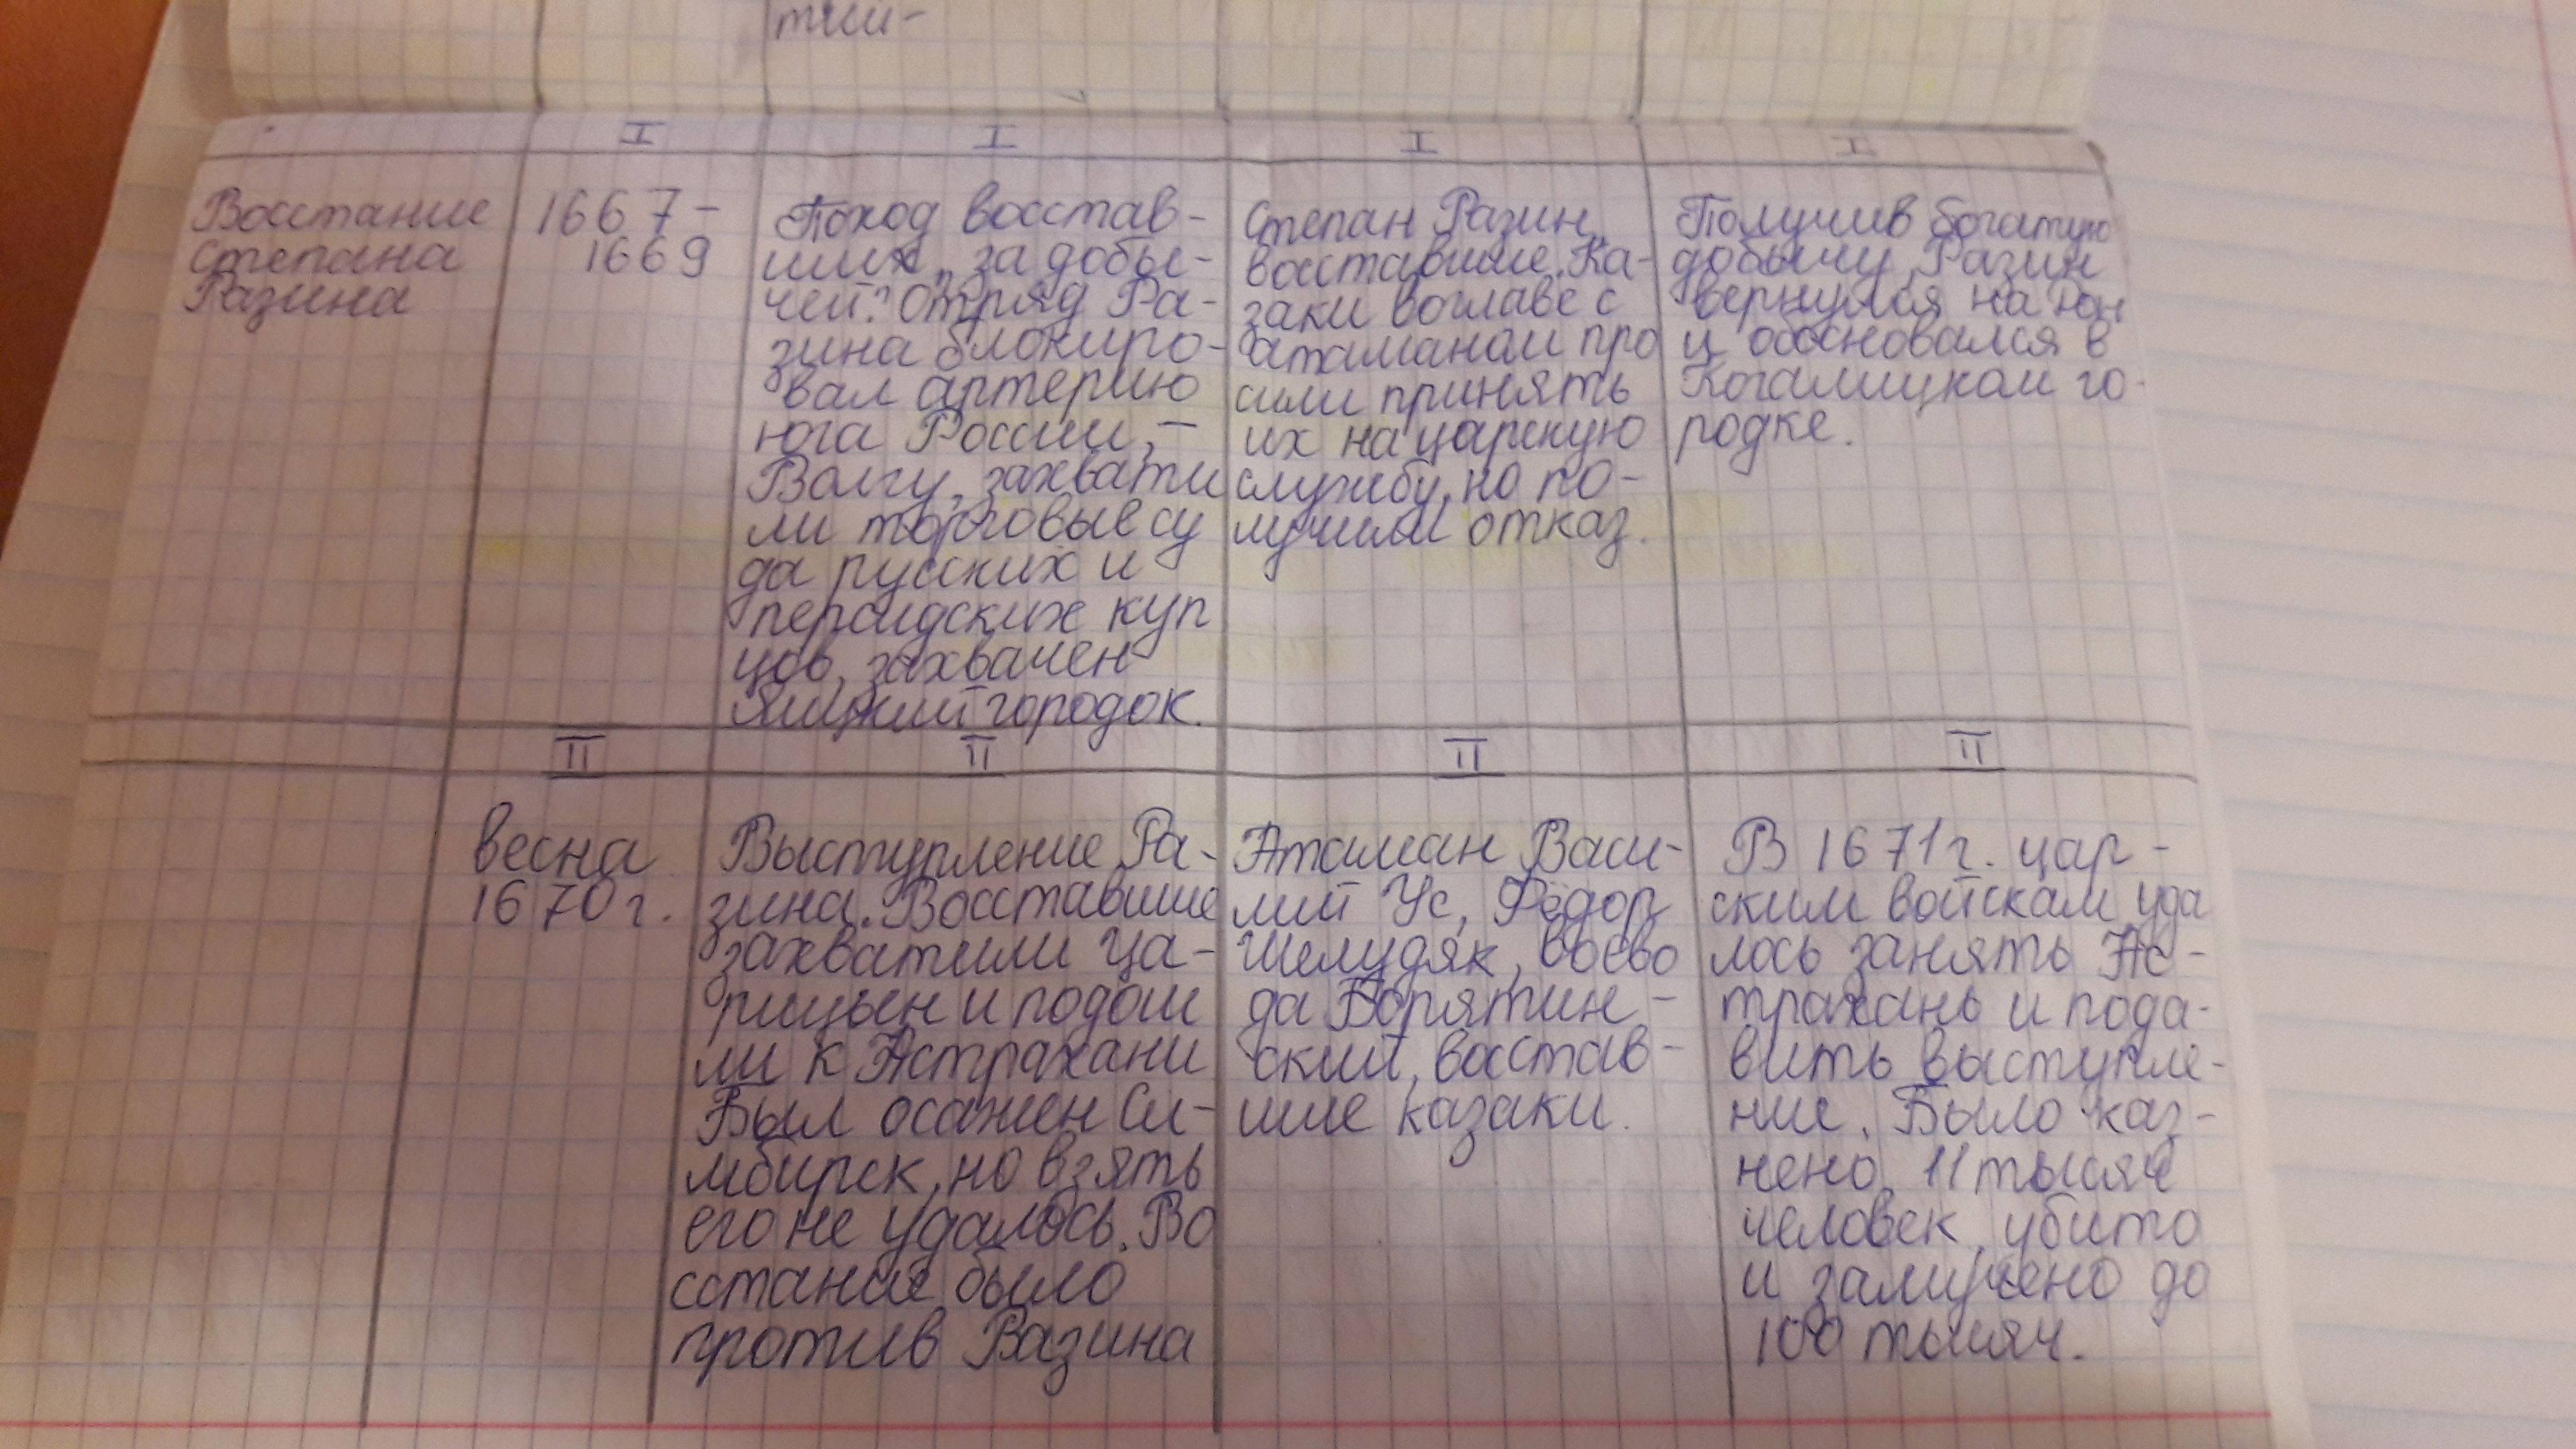 тий-
I
I
I
I
Восстание
Степана
Разина
1667-
1669
Поход восстав-
ших „за добы-
чей". Отряд Ра-
зина блокиро-
вал артерию
юга России, -
Волгу, захвати
ли торговые су
да русских и
персидских куп
цов, захвачен
Яицкий городок.
Степан Разин,
восставшие. Ка-
заки воглаве с
атаманом про
сили принять
их на царскую
службу, но по-
лучили отказ.
Получив богатую
добычу, Разин
вернулся на Дон
и обосновался в
Кагальницком го-
родке.
II
II
II
II
весна
1670 г.
Выступление Ра-
зина. Восставшие
захватили Ца-
рицын и подош
ли к Астрахани
Был осажен Си-
мбирск, но взять
его не удалось. Во
сстание было
против Разина
Атаман Васи-
лий Ус, Фёдор
Шелудяк, воево
да Борятин-
ский, восстав-
шие казаки.
В 1671 г. цар-
ским войскам уда
лось занять Ас-
трахань и пода-
вить выступле-
ние. Было каз-
нено 11 тысяч
человек, убито
и замучено до
100 тысяч.